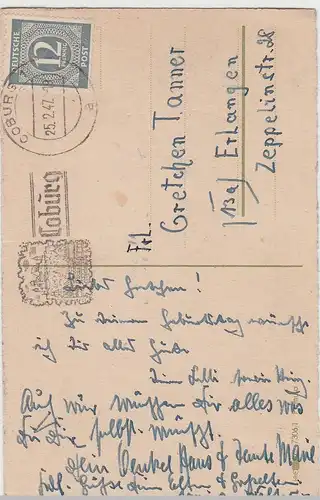 DEUTSCHE
POST
12
COBURG
25.2.47
a
Coburg
Frl.
Gretchen Tanner
(13a) Erlangen
Zeppelinstr. 28
Liebes Gretchen!
Zu Deinem Geburtstag wünsche
ich Dir alles Gute
Deine Lilli
Auch wir wünschen Dir alles was
Du Dir selbst wünscht.
Dein Onkel Hans & Tante Marie